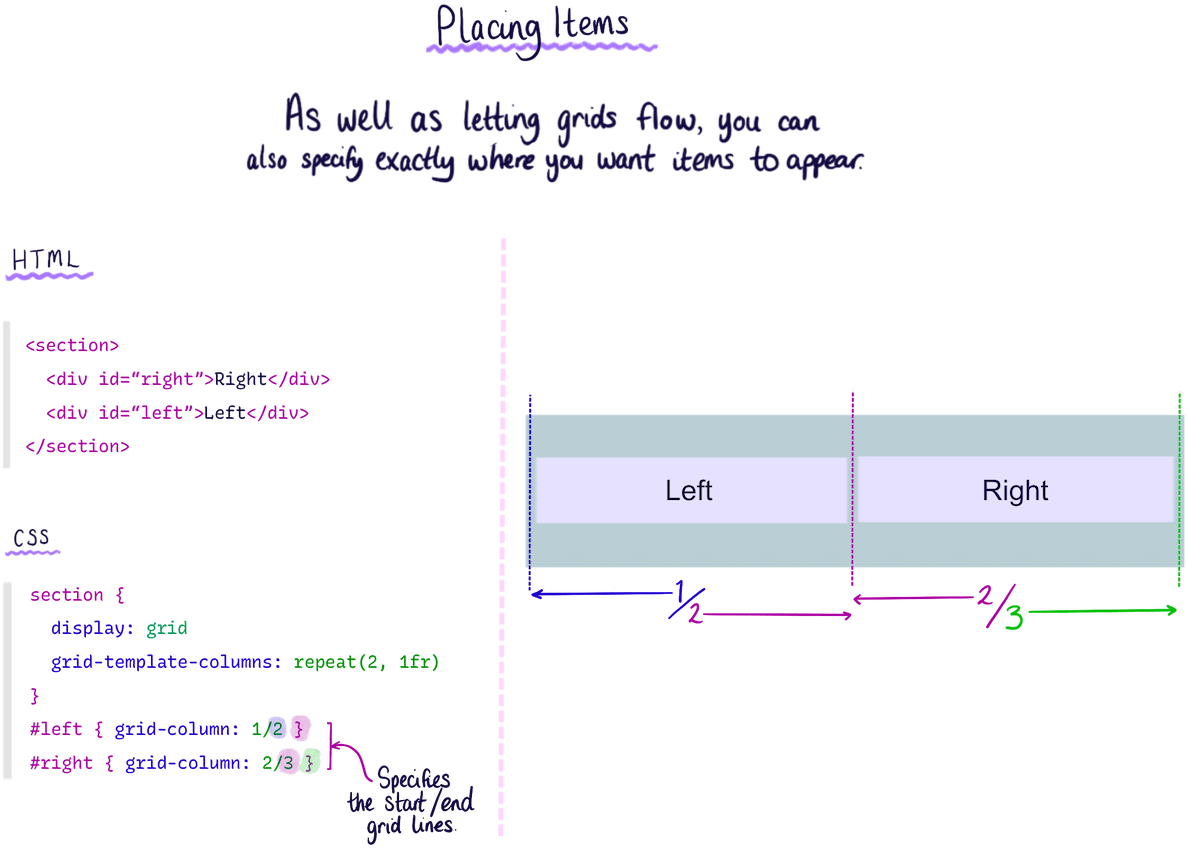 Placing Items
As well as letting grids flow, you can
also specify exactly where you want items to appear.
HTML
<section>
<div id=“right”>Right</div>
<div id=“left”>Left</div>
</section>
CSS
section {
display: grid
grid-template-columns: repeat(2, 1fr)
}
#left { grid-column: 1/2 }
#right { grid-column: 2/3 }
Specifies
the start/end
grid lines.
Left
Right
1/2
2/3